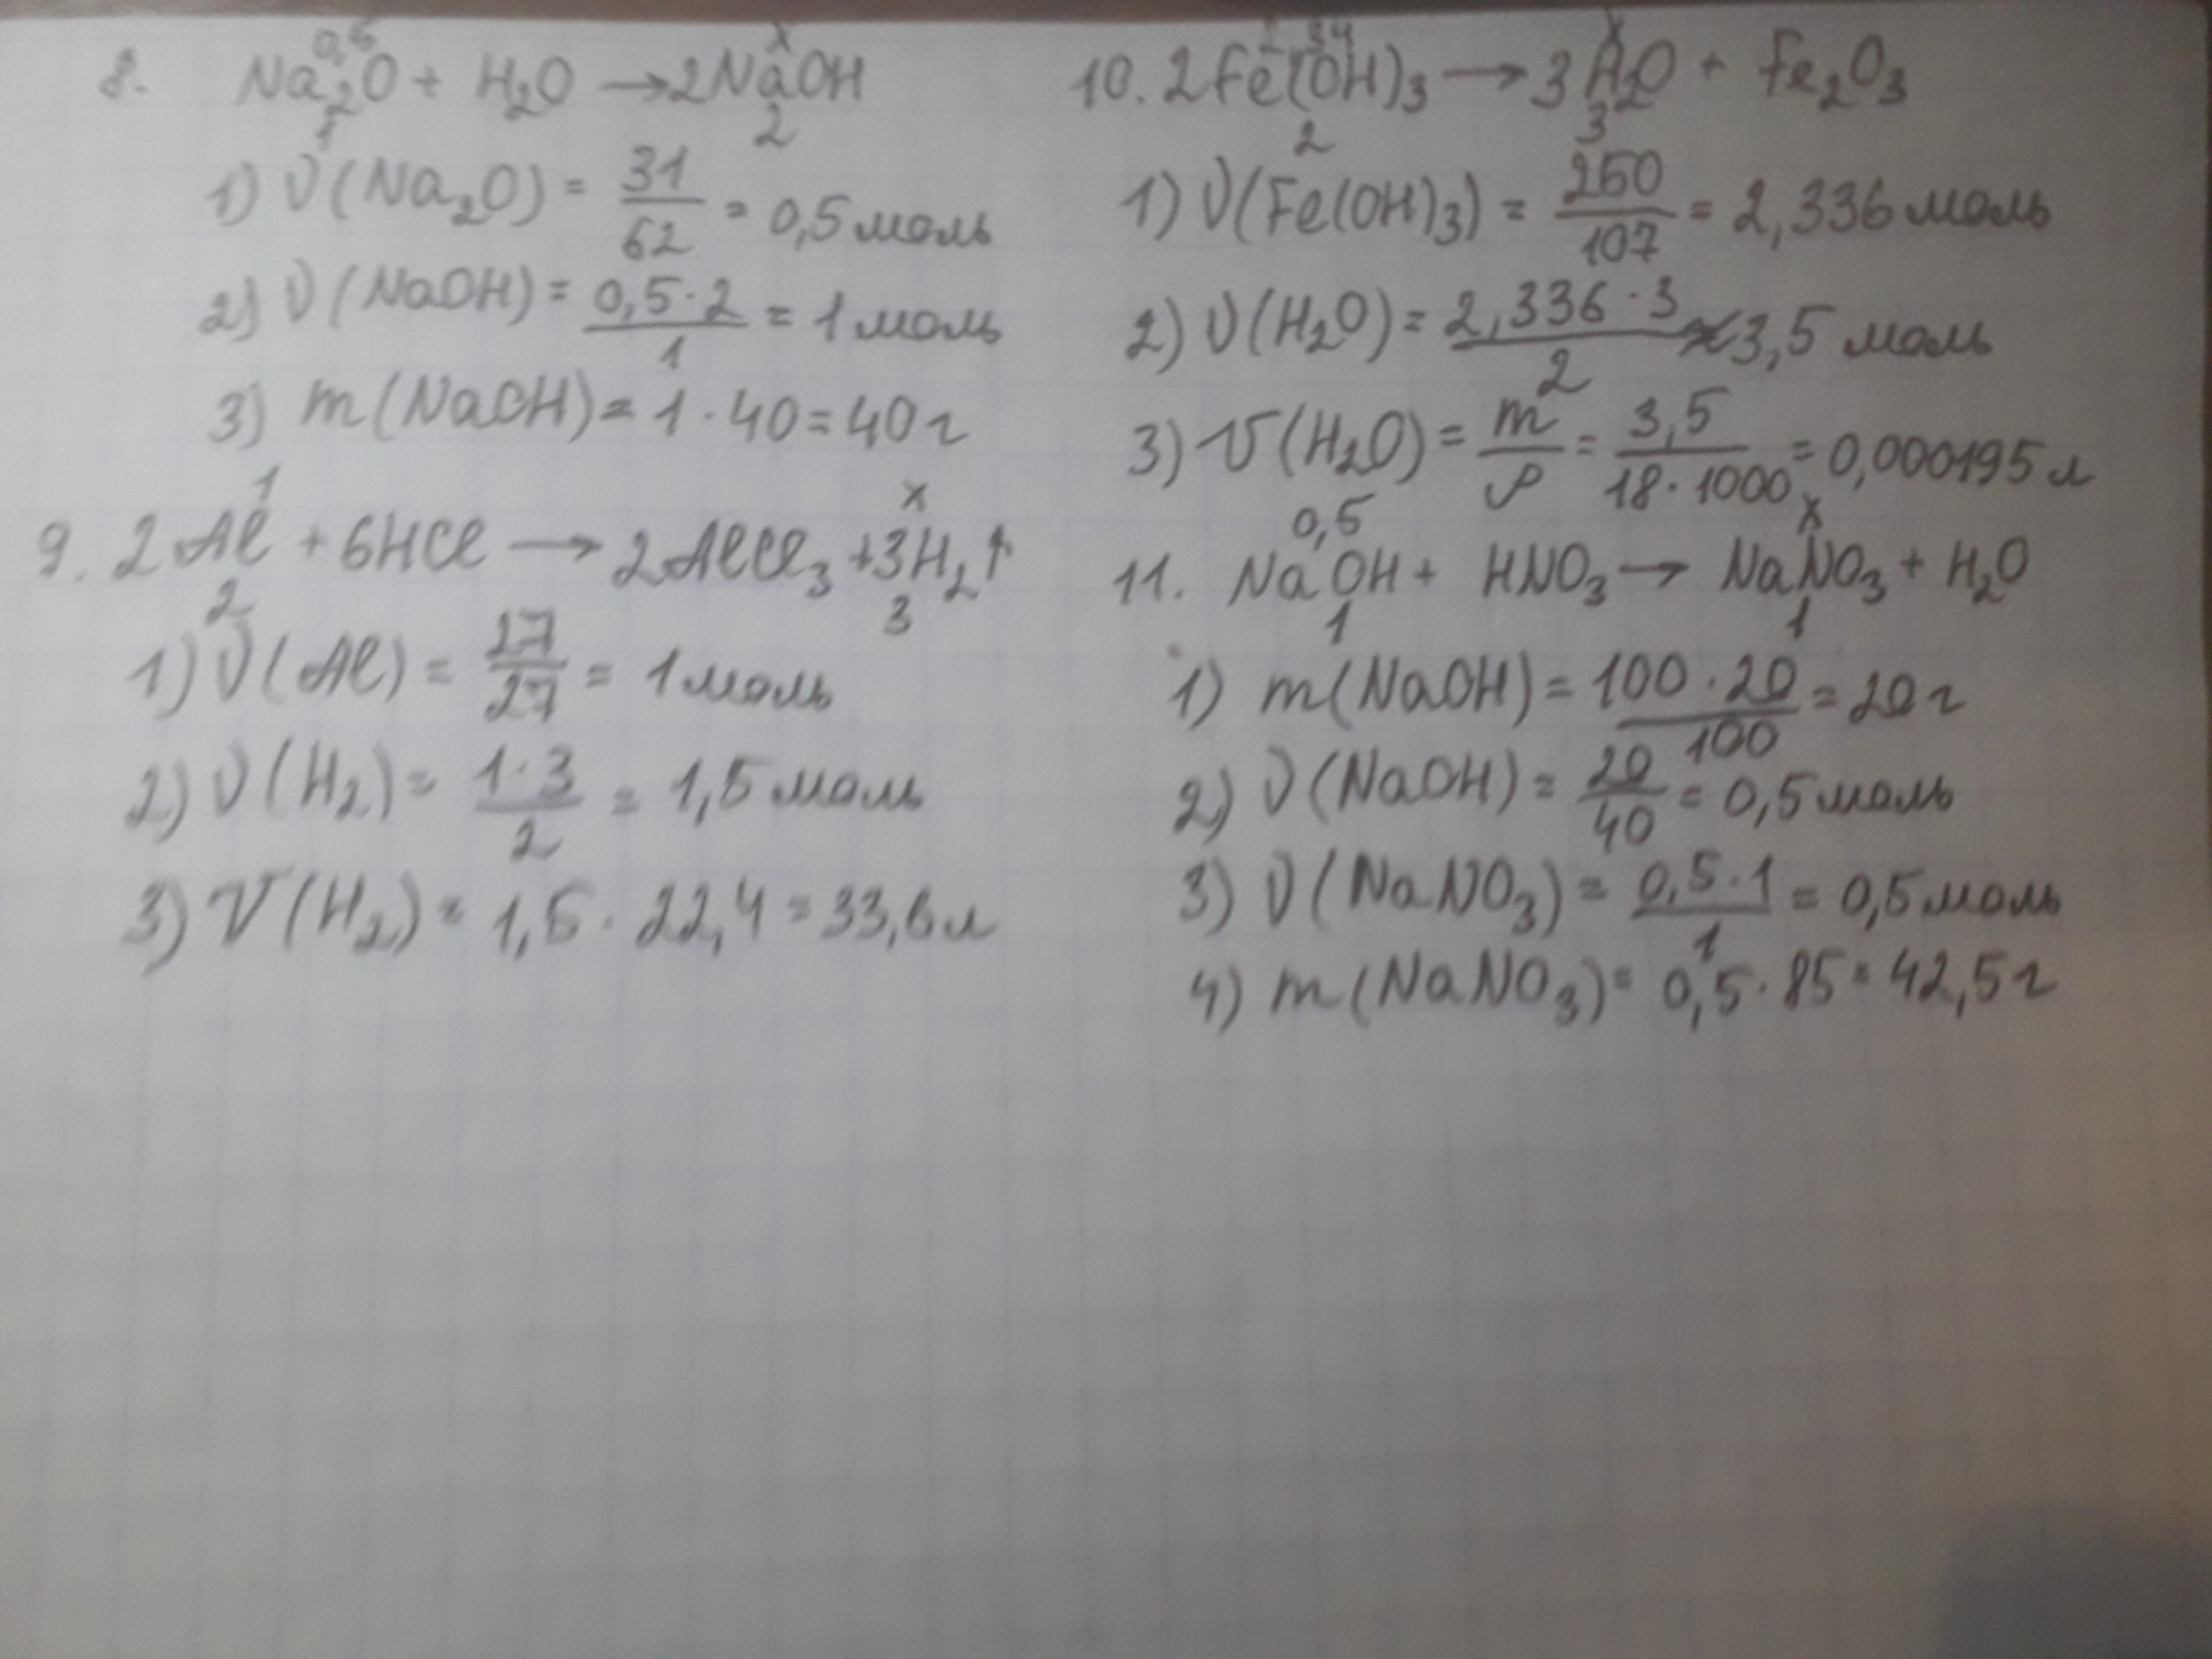 8. Na₂O + H₂O → 2NaOH
0,5 x
1 2
1) ν(Na₂O) = 31/62 = 0,5 моль
2) ν(NaOH) = 0,5·2/1 = 1 моль
3) m(NaOH) = 1·40 = 40 г
1 x
9. 2Al + 6HCl → 2AlCl₃ + 3H₂↑
2 3
1) ν(Al) = 27/27 = 1 моль
2) ν(H₂) = 1·3/2 = 1,5 моль
3) V(H₂) = 1,5·22,4 = 33,6 л
x
10. 2Fe(OH)₃ → 3H₂O + Fe₂O₃
2 3
1) ν(Fe(OH)₃) = 250/107 = 2,336 моль
2) ν(H₂O) = 2,336·3/2 ≈ 3,5 моль
3) V(H₂O) = m/ρ = 3,5/18·1000 = 0,000195 л
0,5 x
11. NaOH + HNO₃ → NaNO₃ + H₂O
1 1
1) m(NaOH) = 100·20/100 = 20 г
2) ν(NaOH) = 20/40 = 0,5 моль
3) ν(NaNO₃) = 0,5·1/1 = 0,5 моль
4) m(NaNO₃) = 0,5·85 = 42,5 г